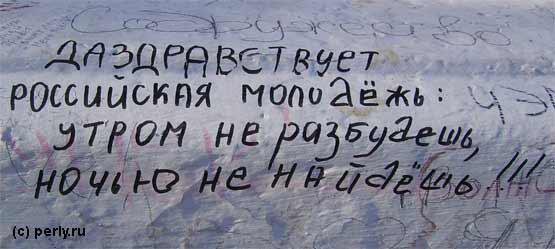 Содружество
ДАЗДРАВСТВУЕТ
РОССИЙСКАЯ МОЛОДЁЖЬ:
УТРОМ НЕ РАЗБУДЕШЬ,
НОЧЬЮ НЕ НАЙДЁШЬ!!!
(c) perly.ru